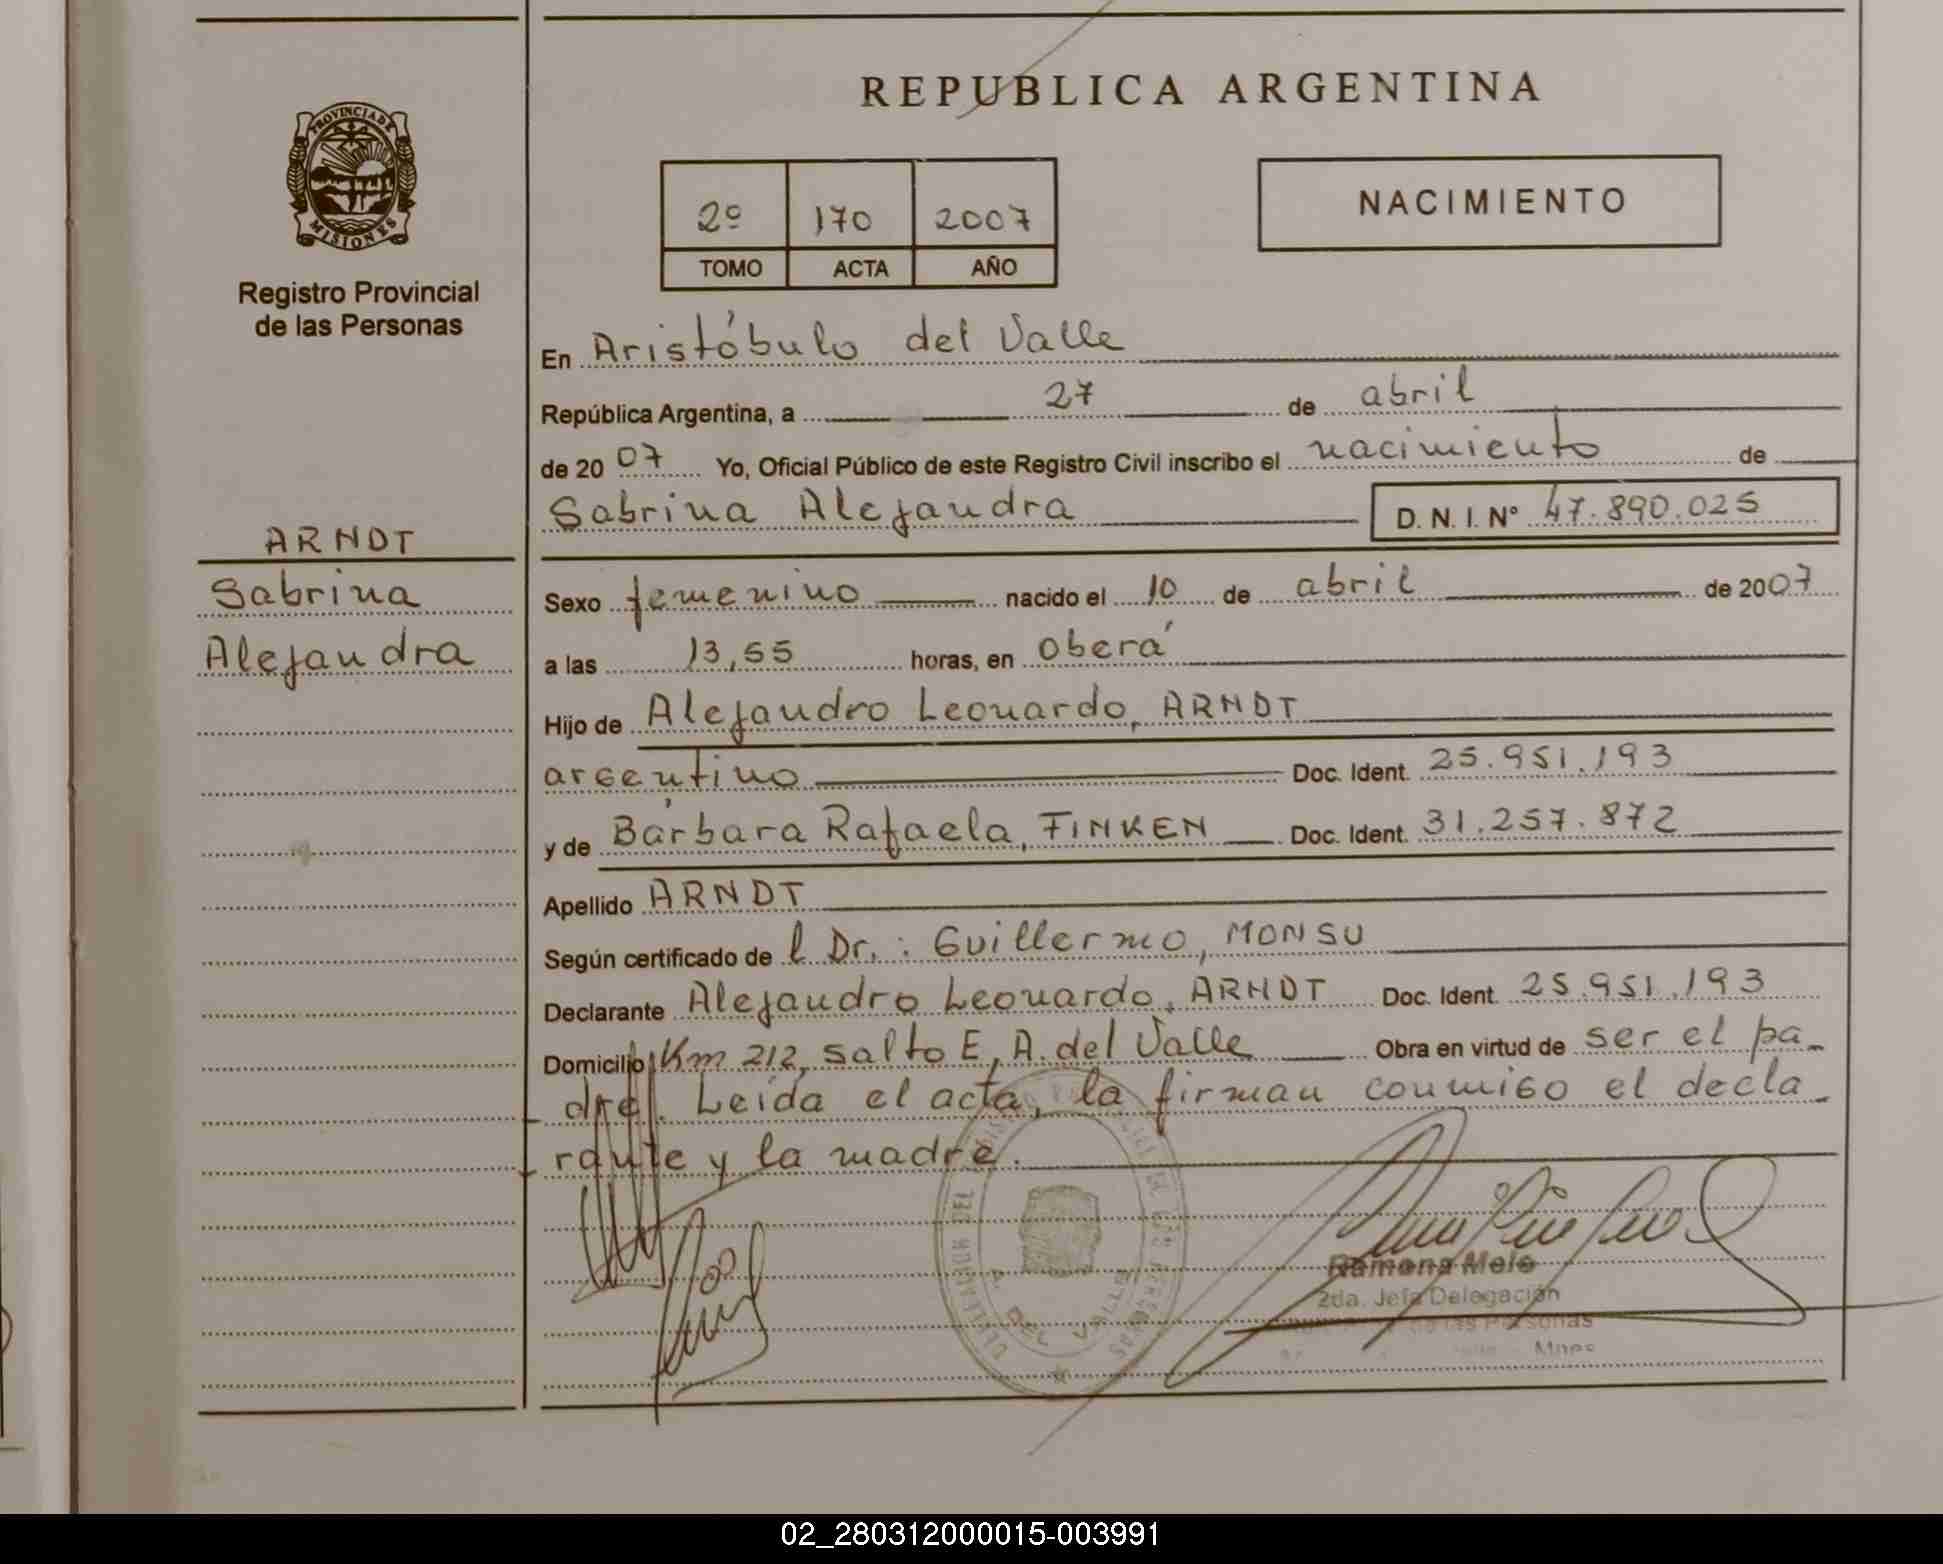 REPUBLICA ARGENTINA
PROVINCIA DE
MISIONES
Registro Provincial
de las Personas
2º 170 2007
TOMO ACTA AÑO
NACIMIENTO
En Aristóbulo del Valle
República Argentina, a 27 de abril
de 2007 Yo, Oficial Público de este Registro Civil inscribo el nacimiento de
Sabrina Alejandra D. N. I. Nº 47.890.025
ARNDT
Sabrina
Alejandra
Sexo femenino nacido el 10 de abril de 2007
a las 13,55 horas, en Oberá
Hijo de Alejandro Leonardo, ARNDT
argentino Doc. Ident. 25.951.193
y de Bárbara Rafaela, FINKEN Doc. Ident. 31.257.872
Apellido ARNDT
Según certificado de l Dr.: Guillermo, MONSU
Declarante Alejandro Leonardo, ARNDT Doc. Ident. 25.951.193
Domicilio Km 212, salto E, A. del Valle Obra en virtud de ser el pa-
dre. Leída el acta, la firman conmigo el decla-
rante y la madre.
DEL VALLE
Ramona Melo
2da. Jefa Delegación
de las Personas
Mnes
02_280312000015-003991